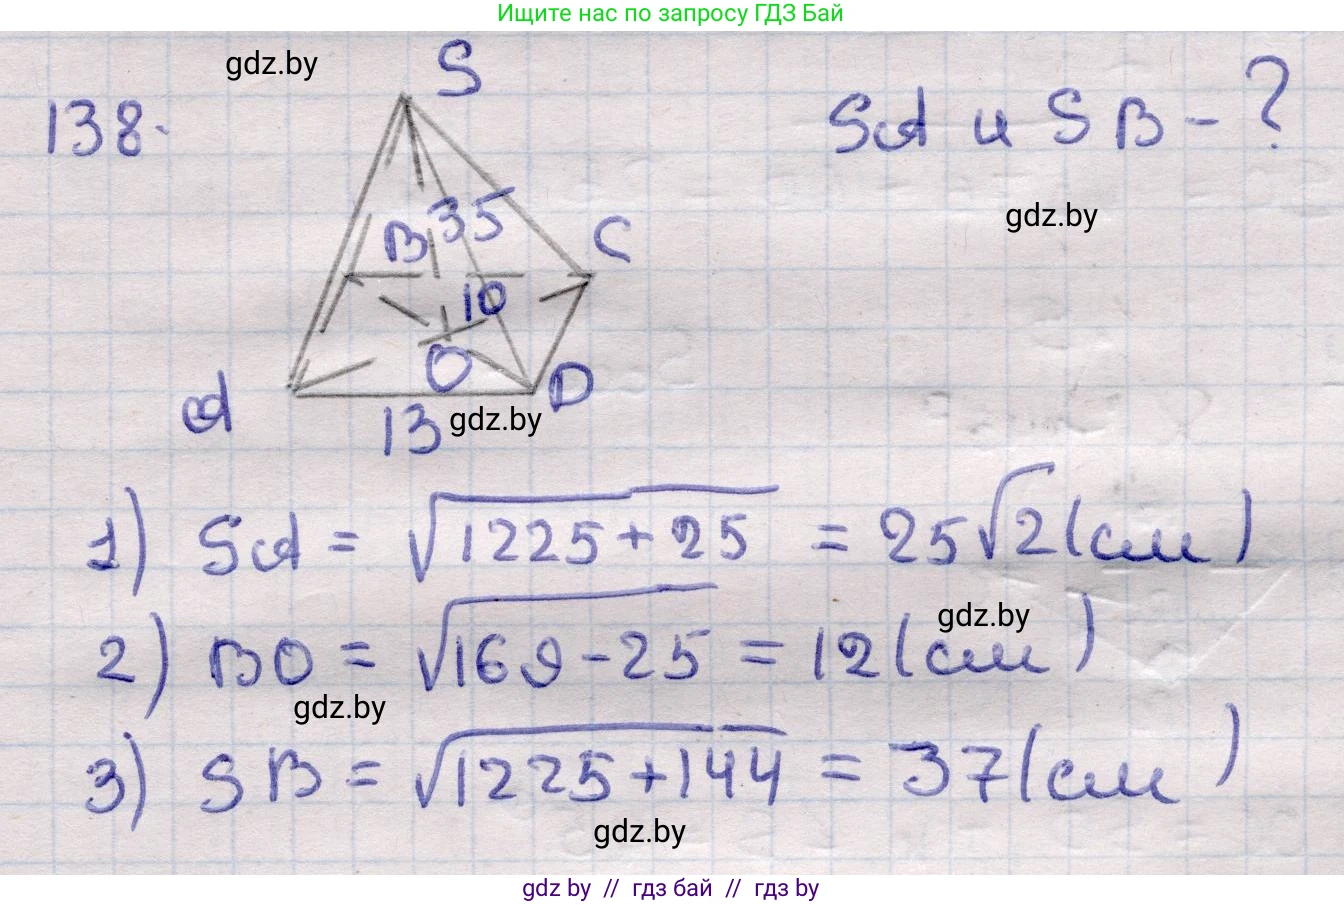 Ищите нас по запросу ГДЗ Бай
gdz.by
S
138.
SA и SB - ?
gdz.by
35
B
C
10
O
A
D
13
gdz.by
1) SA = √1225+25 = 25√2 (см)
2) BO = √169-25 = 12 (см)
gdz.by
gdz.by
3) SB = √1225+144 = 37 (см)
gdz.by
gdz by // гдз бай // гдз by